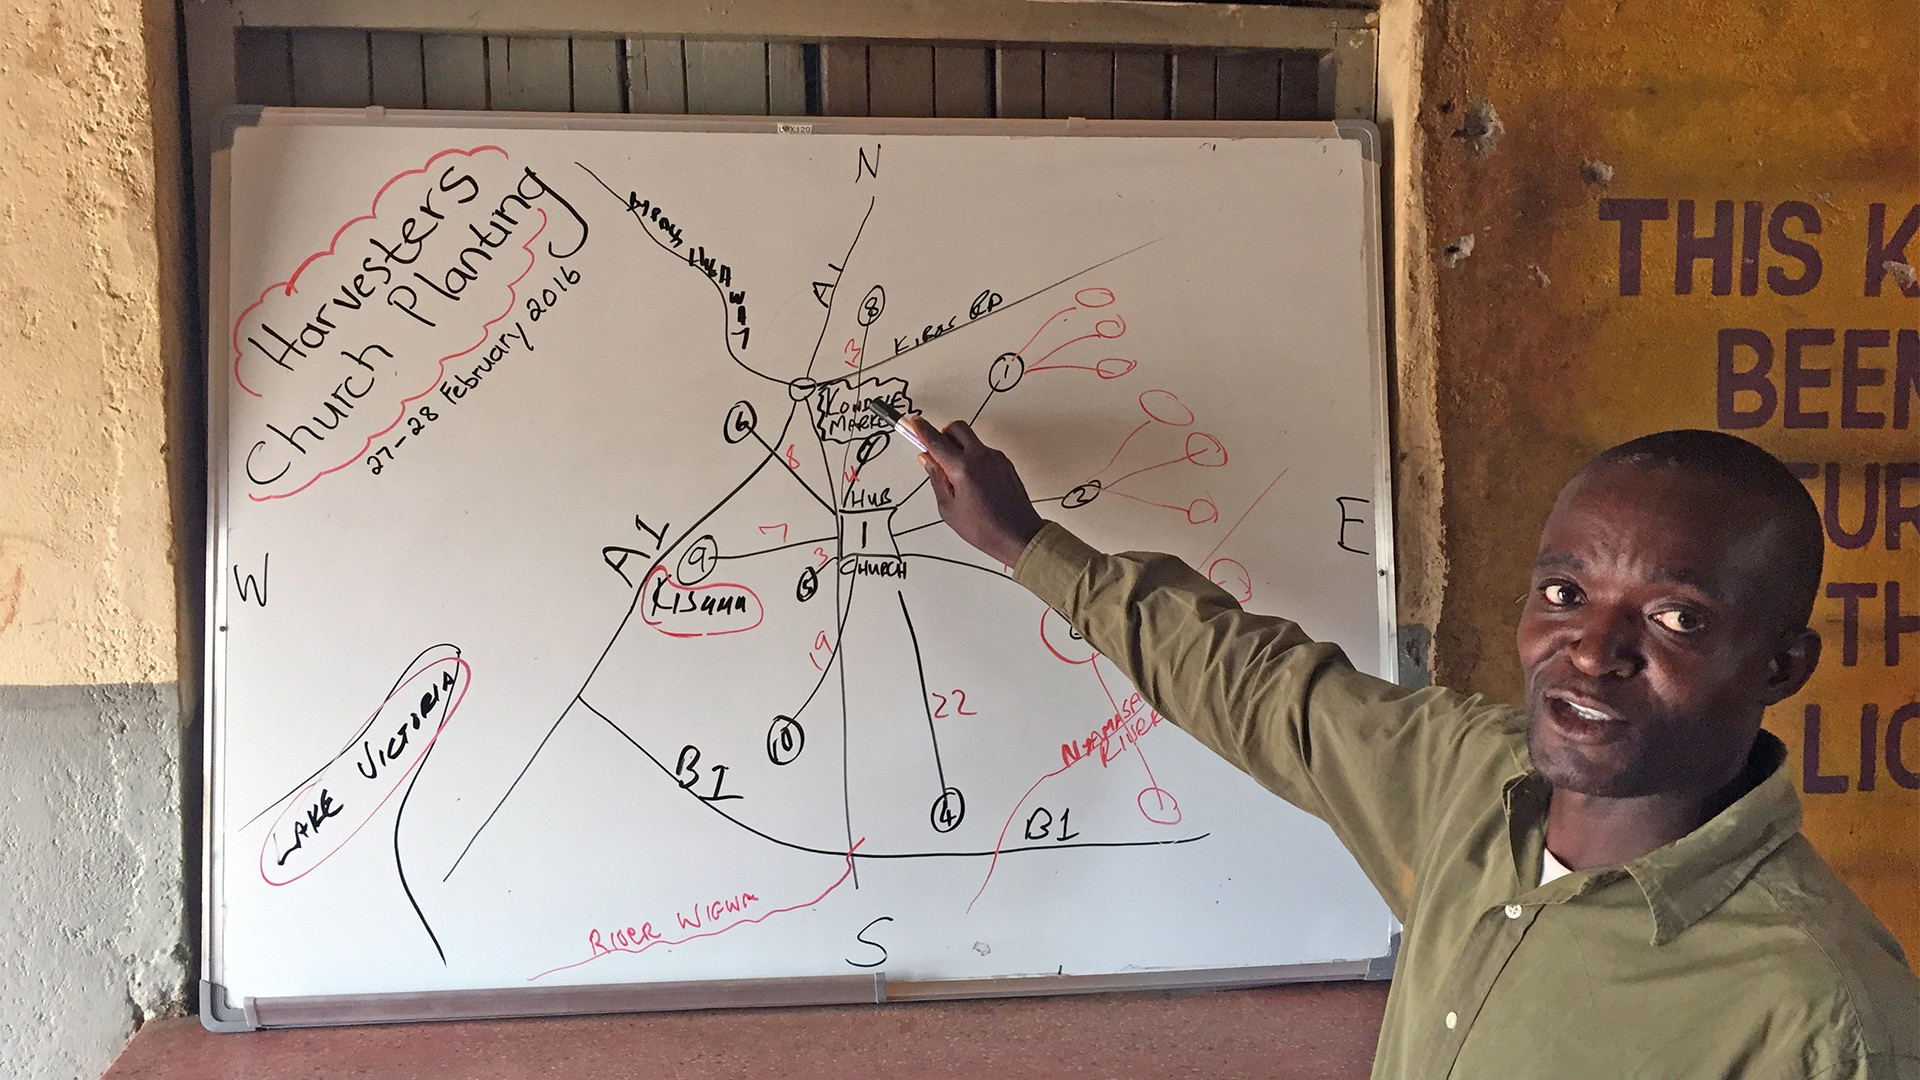 LUX120
Harvesters
Church Planting
27-28 February 2016
N
A1
8
13
KIBOS RD
1
KONDELE
MARKET
6
8
7
4
2
HUB
1
CHURCH
A1
7
9
3
5
KISUMU
W
E
19
LAKE VICTORIA
10
22
B1
4
B1
RIVER
RIVER WIGWA
S
THIS K
BEEN
TUR
TH
LIG